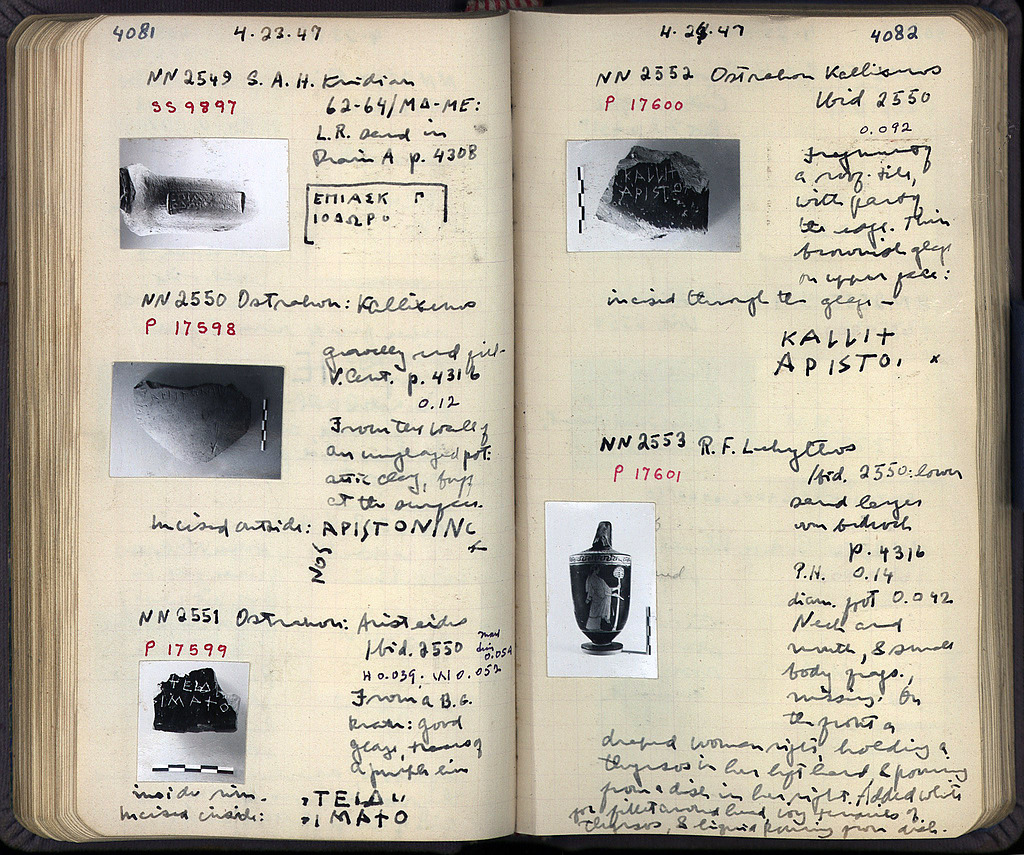 4081 4.23.47
NN 2549 S.A.H. Knidian
SS 9897
62-64/ΜΔ-ΜΕ:
L.R. sand in
Drain A p. 4308
ΕΠΙΑΣΚ Γ
ΙΟΔΩΡΟ
NN 2550 Ostrakon: Kallixenos
P 17598
gravelly red fill-
V. Cent. p. 4316
0.12
From the wall of
an unglazed pot:
attic clay, buff
at the surface.
Incised outside: ΑΡΙΣΤΟΝΙΝ
NN 2551 Ostrakon: Aristeides
P 17599
Ibid. 2550
max dim 0.054
H 0.039. W 0.052
From a B.G.
krater: good
glaze, traces of
a purple line
inside rim.
Incised inside:
ΤΕΙΔ
ΙΜΑΤΟ
4.24.47 4082
NN 2552 Ostrakon Kallixenos
P 17600
Ibid 2550
0.092
Fragment of
a roof-tile,
with part of
the edge. Thin
brownish glaze
on upper face:
incised through the glaze –
ΚΑLLΙ+
ΑΡΙSΤΟ
NN 2553 R.F. Lekythos
P 17601
Ibid. 2550: lower
sand layer
on bedrock
p. 4316
P.H. 0.14
diam. foot 0.042
Neck and
mouth, & small
body frags.,
missing. On
the front a
draped woman right, holding a
thyrsos in her left hand & pouring
from a dish in her right. Added white
for fillet around head, ivy terminals of
thyrsos, & liquid pouring from dish.